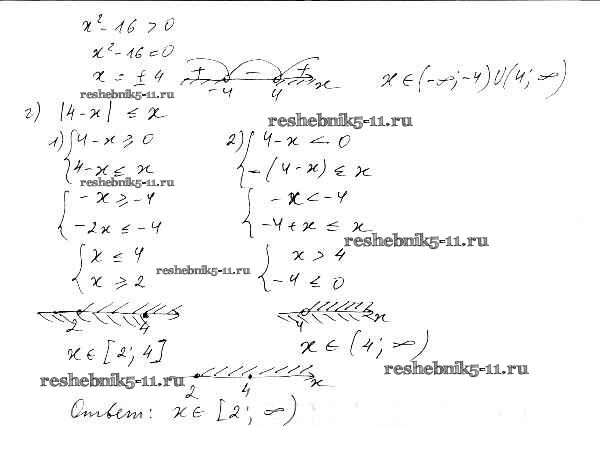 x² - 16 > 0
x² - 16 = 0
x = ± 4
+ - +
-4 4 x
x ∈ (-∞; -4) ∪ (4; ∞)
reshebnik5-11.ru
г) |4-x| ≤ x
reshebnik5-11.ru
1) { 4-x ≥ 0
4-x ≤ x
2) { 4-x < 0
-(4-x) ≤ x
reshebnik5-11.ru
{ -x ≥ -4
-2x ≤ -4
{ -x < -4
-4+x ≤ x
reshebnik5-11.ru
{ x ≤ 4
x ≥ 2
reshebnik5-11.ru
{ x > 4
-4 ≤ 0
2 4
4 x
x ∈ [2; 4]
x ∈ (4; ∞)
reshebnik5-11.ru
reshebnik5-11.ru
2 4 x
Ответ: x ∈ [2; ∞)